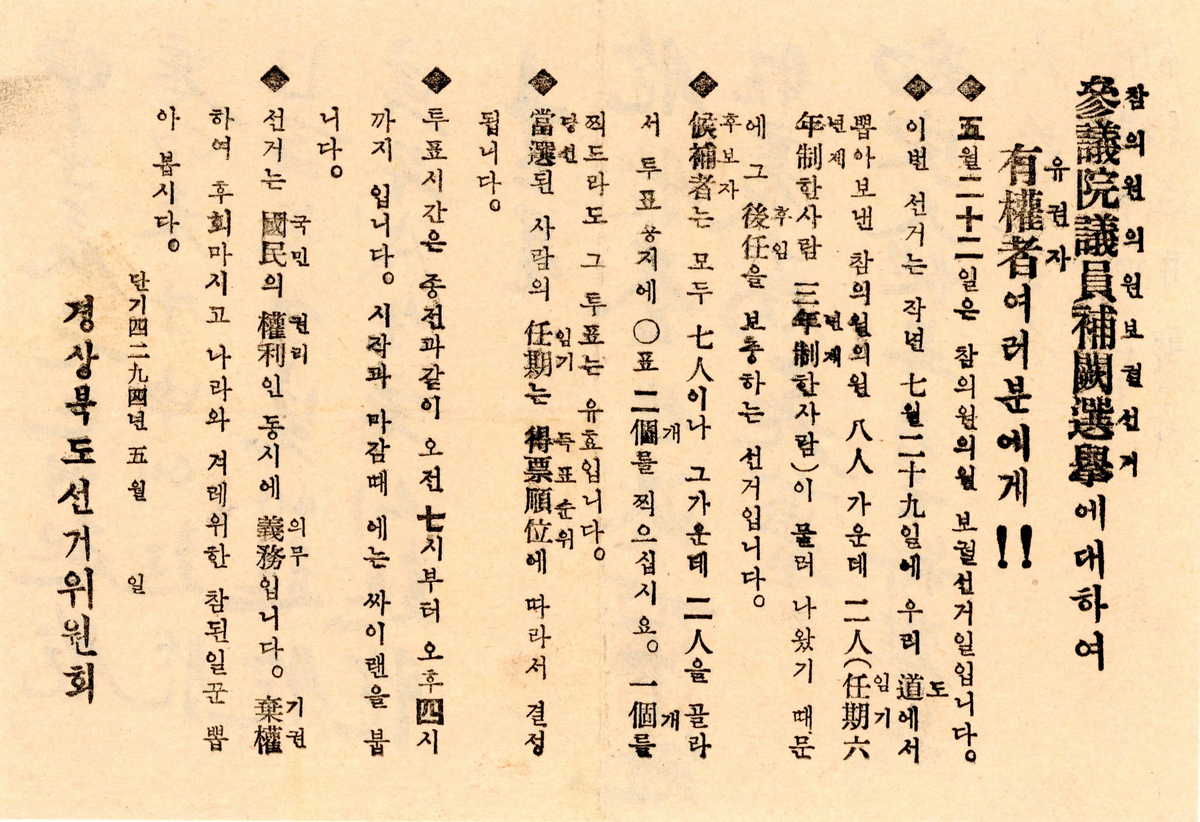 참의원의원보궐선거
參議院議員補闕選擧에대하여
유권자
有權者여러분에게!!
◆五월二十二일은 참의원의원 보궐선거일입니다。
도
◆이번 선거는 작년 七월二十九일에 우리 道에서
임기
뽑아보낸 참의원의원 八人 가운데 二人(任期六
년제 년제
年制한사람 三年制한사람)이 물러 나왔기 때문
후임
에 그 後任을 보충하는 선거입니다。
후보자
◆候補者는 모두 七人이나 그가운데 二人을 골라
개 개
서 투표용지에 〇표 二個를 찍으십시요。 一個를
찍드라도 그 투표는 유효입니다。
당선 임기 득표순위
◆當選된 사람의 任期는 得票順位에 따라서 결정
됩니다。
◆투표시간은 종전과같이 오전 七시부터 오후四시
까지 입니다。 시작과 마감때 에는 싸이랜을 붑
니다。
국민 권리 의무 기권
◆선거는 國民의 權利인 동시에 義務입니다。 棄權
하여 후회마시고 나라와 겨레위한 참된일꾼 뽑
아 봅시다。
단기四二九四년 五월 일
경상북도선거위원회